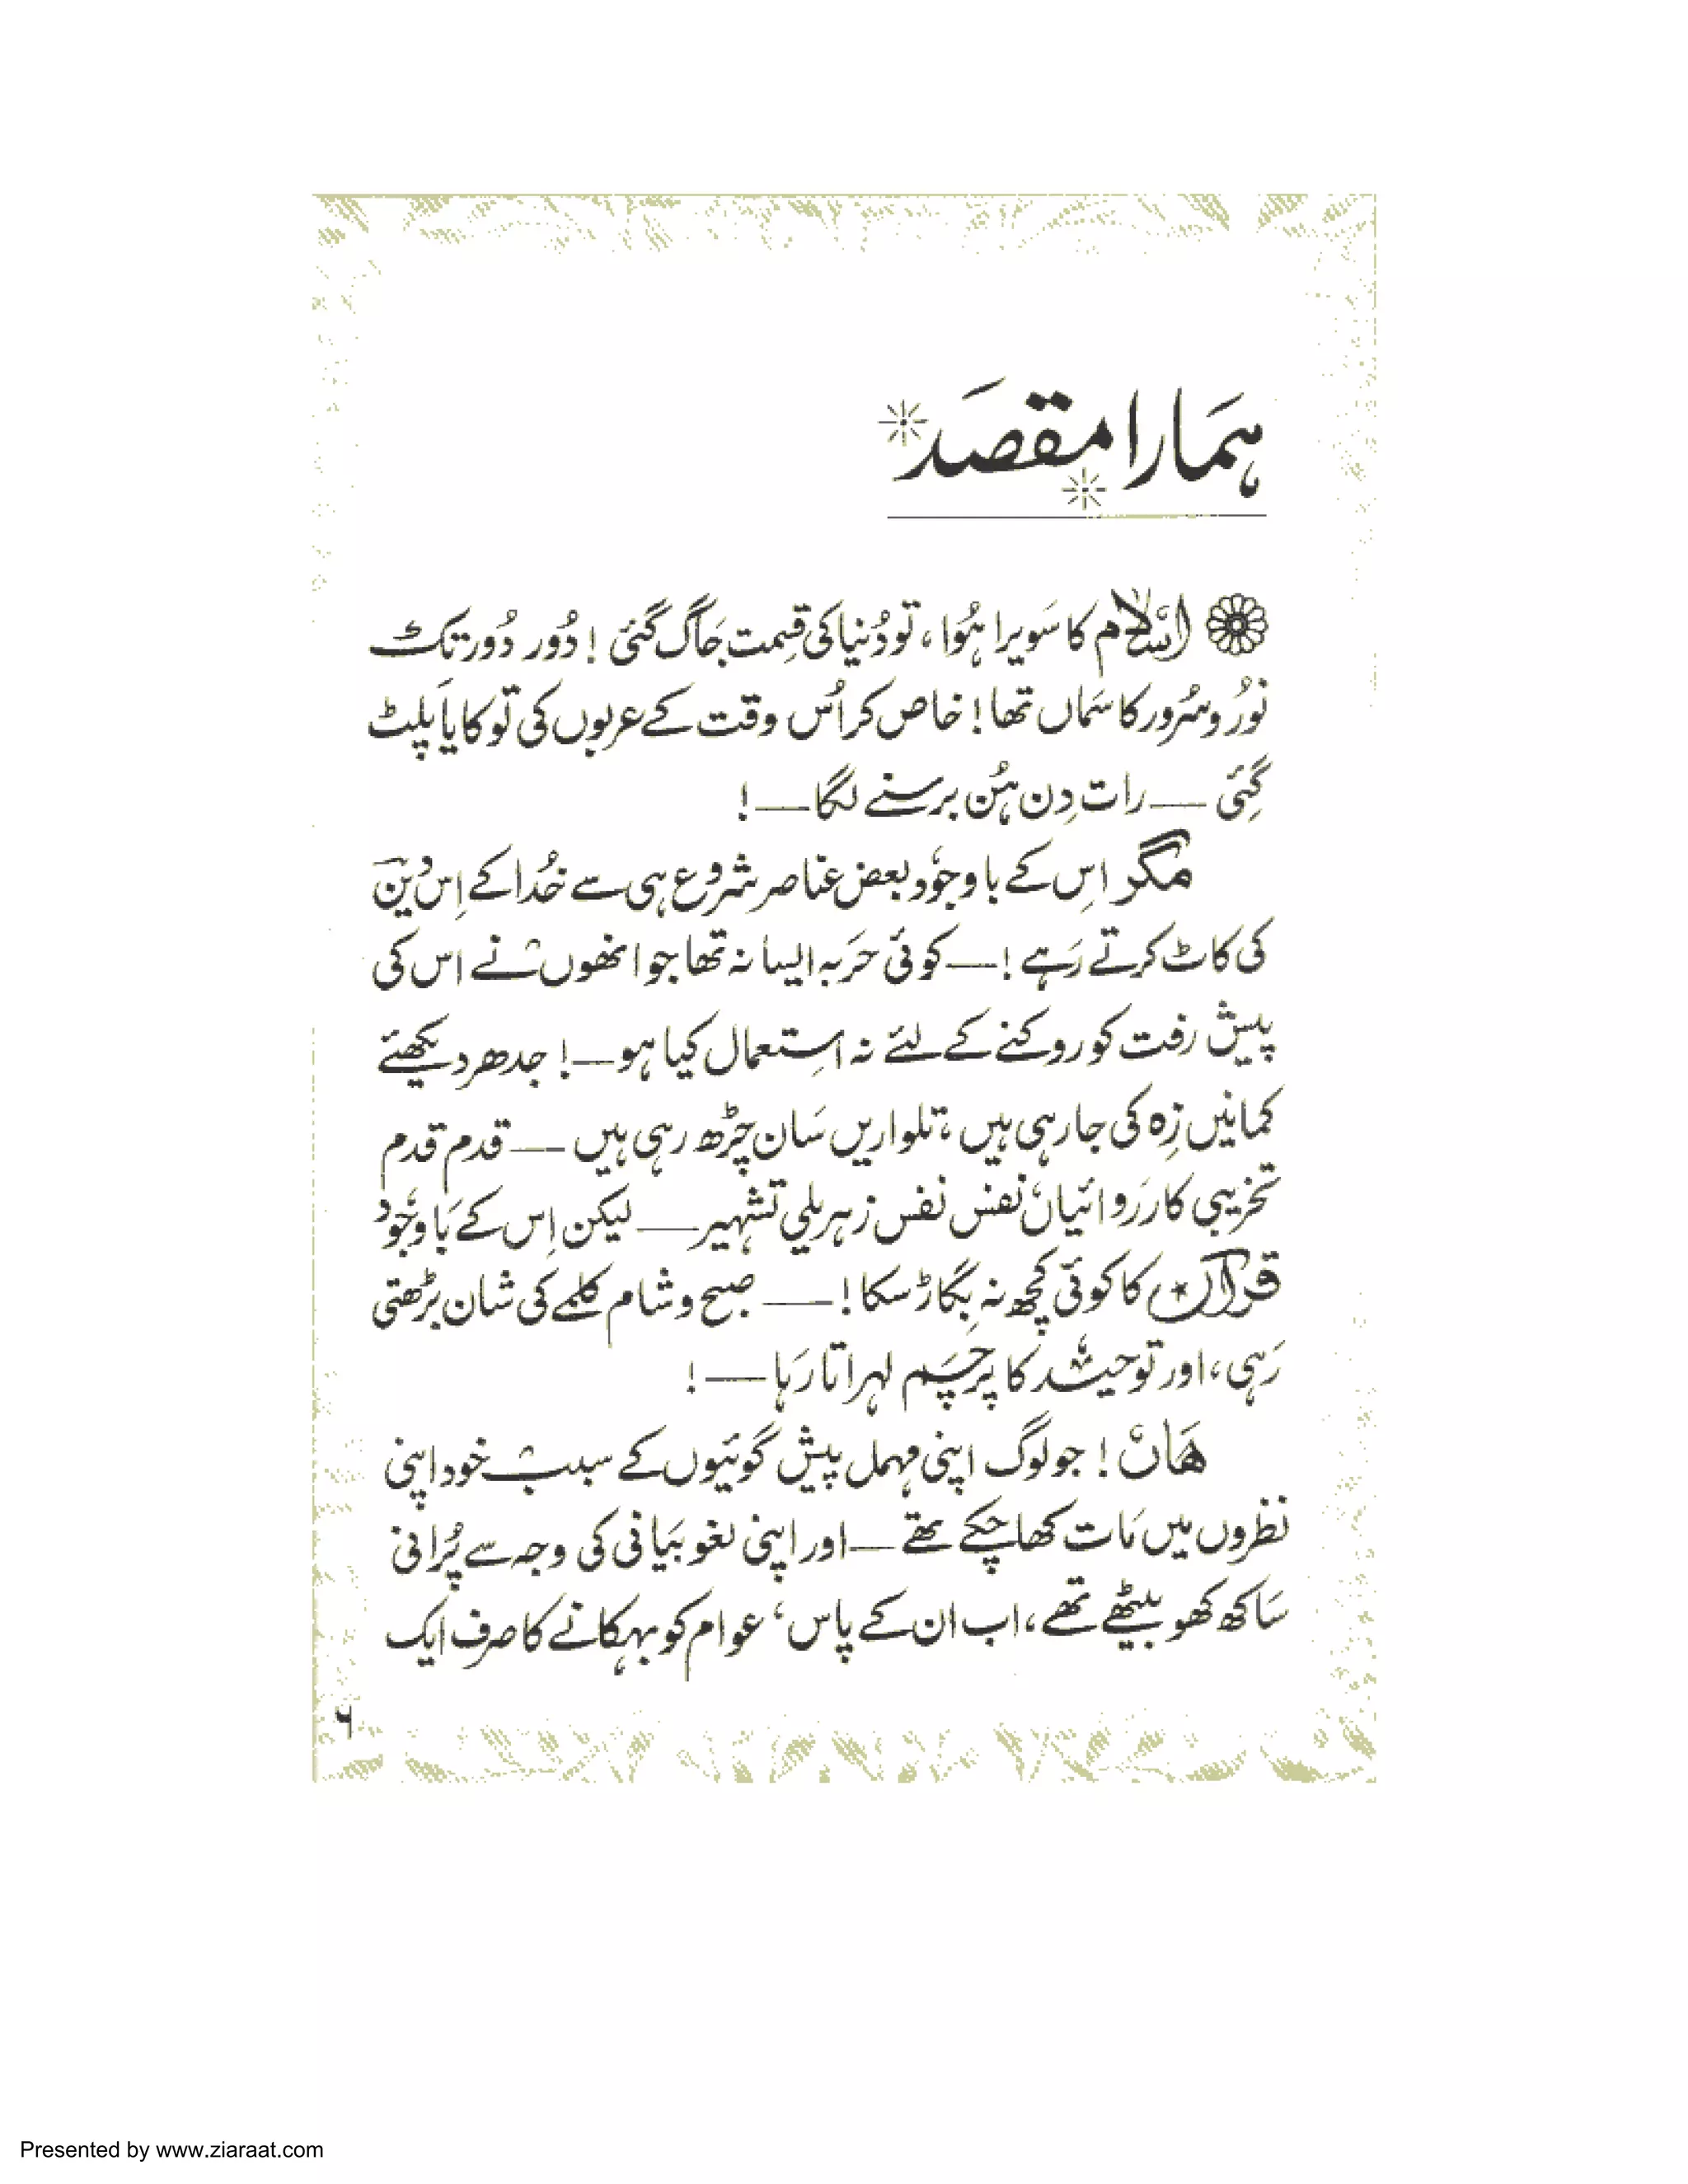 ہمَارا مقصَد
اسلام کا سَویرا ہُوا، تو دُنیا کی قِسمت جَاگ گئی! دُور دُور تک
نُورُ و سُرور کا سَماں تھا! خاص کر اُس وقت کے عربوں کی تو کایا پلٹ
گئی — رات دِن ہُن برسنے لگا —!
مگر اِس کے باوجوُد بعض عناصر شروع ہی سے خُدا کے اِس دین
کی کاٹ کرتے رَہے! — کوئی حَربہ ایسا نہ تھا جو انھوں نے اس کی
پیش رفت کو روکنے کے لئے نہ اِستعمال کیا ہو —! جدھر دیکھئے
کمانیں زِہ کی جارہی ہیں، تلواریں سَان چڑھ رہی ہیں — قدم قدم
تخریبی کارَروائیاں نفس نفس زہریلی تشہیر — لیکن اِس کے بَاوجوُد
قرآن کا کوئی کچھ نہ بِگاڑ سکا! — صبح و شام کلمے کی شان بڑھتی
رَہی، اور توحید کا پَرچَم لہراتا رَہا —!
ھَاں! جو لوگ اپنی مہمل پیش گوئیوں کے سبب خود اپنی
نظروں میں مَات کھاچکے تھے — اور اپنی لغو بیَانی کی وجہ سے پُرانی
سَاکھ کھو بیٹھے تھے، اب ان کے پاس، عوام کو بہکانے کا صرف ایک
۶
Presented by www.ziaraat.com